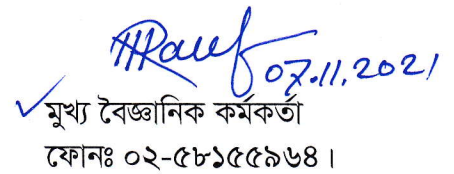 07.11.2021
মুখ্য বৈজ্ঞানিক কর্মকর্তা
ফোনঃ ০২-৫৮১৫৫৯৬৪।